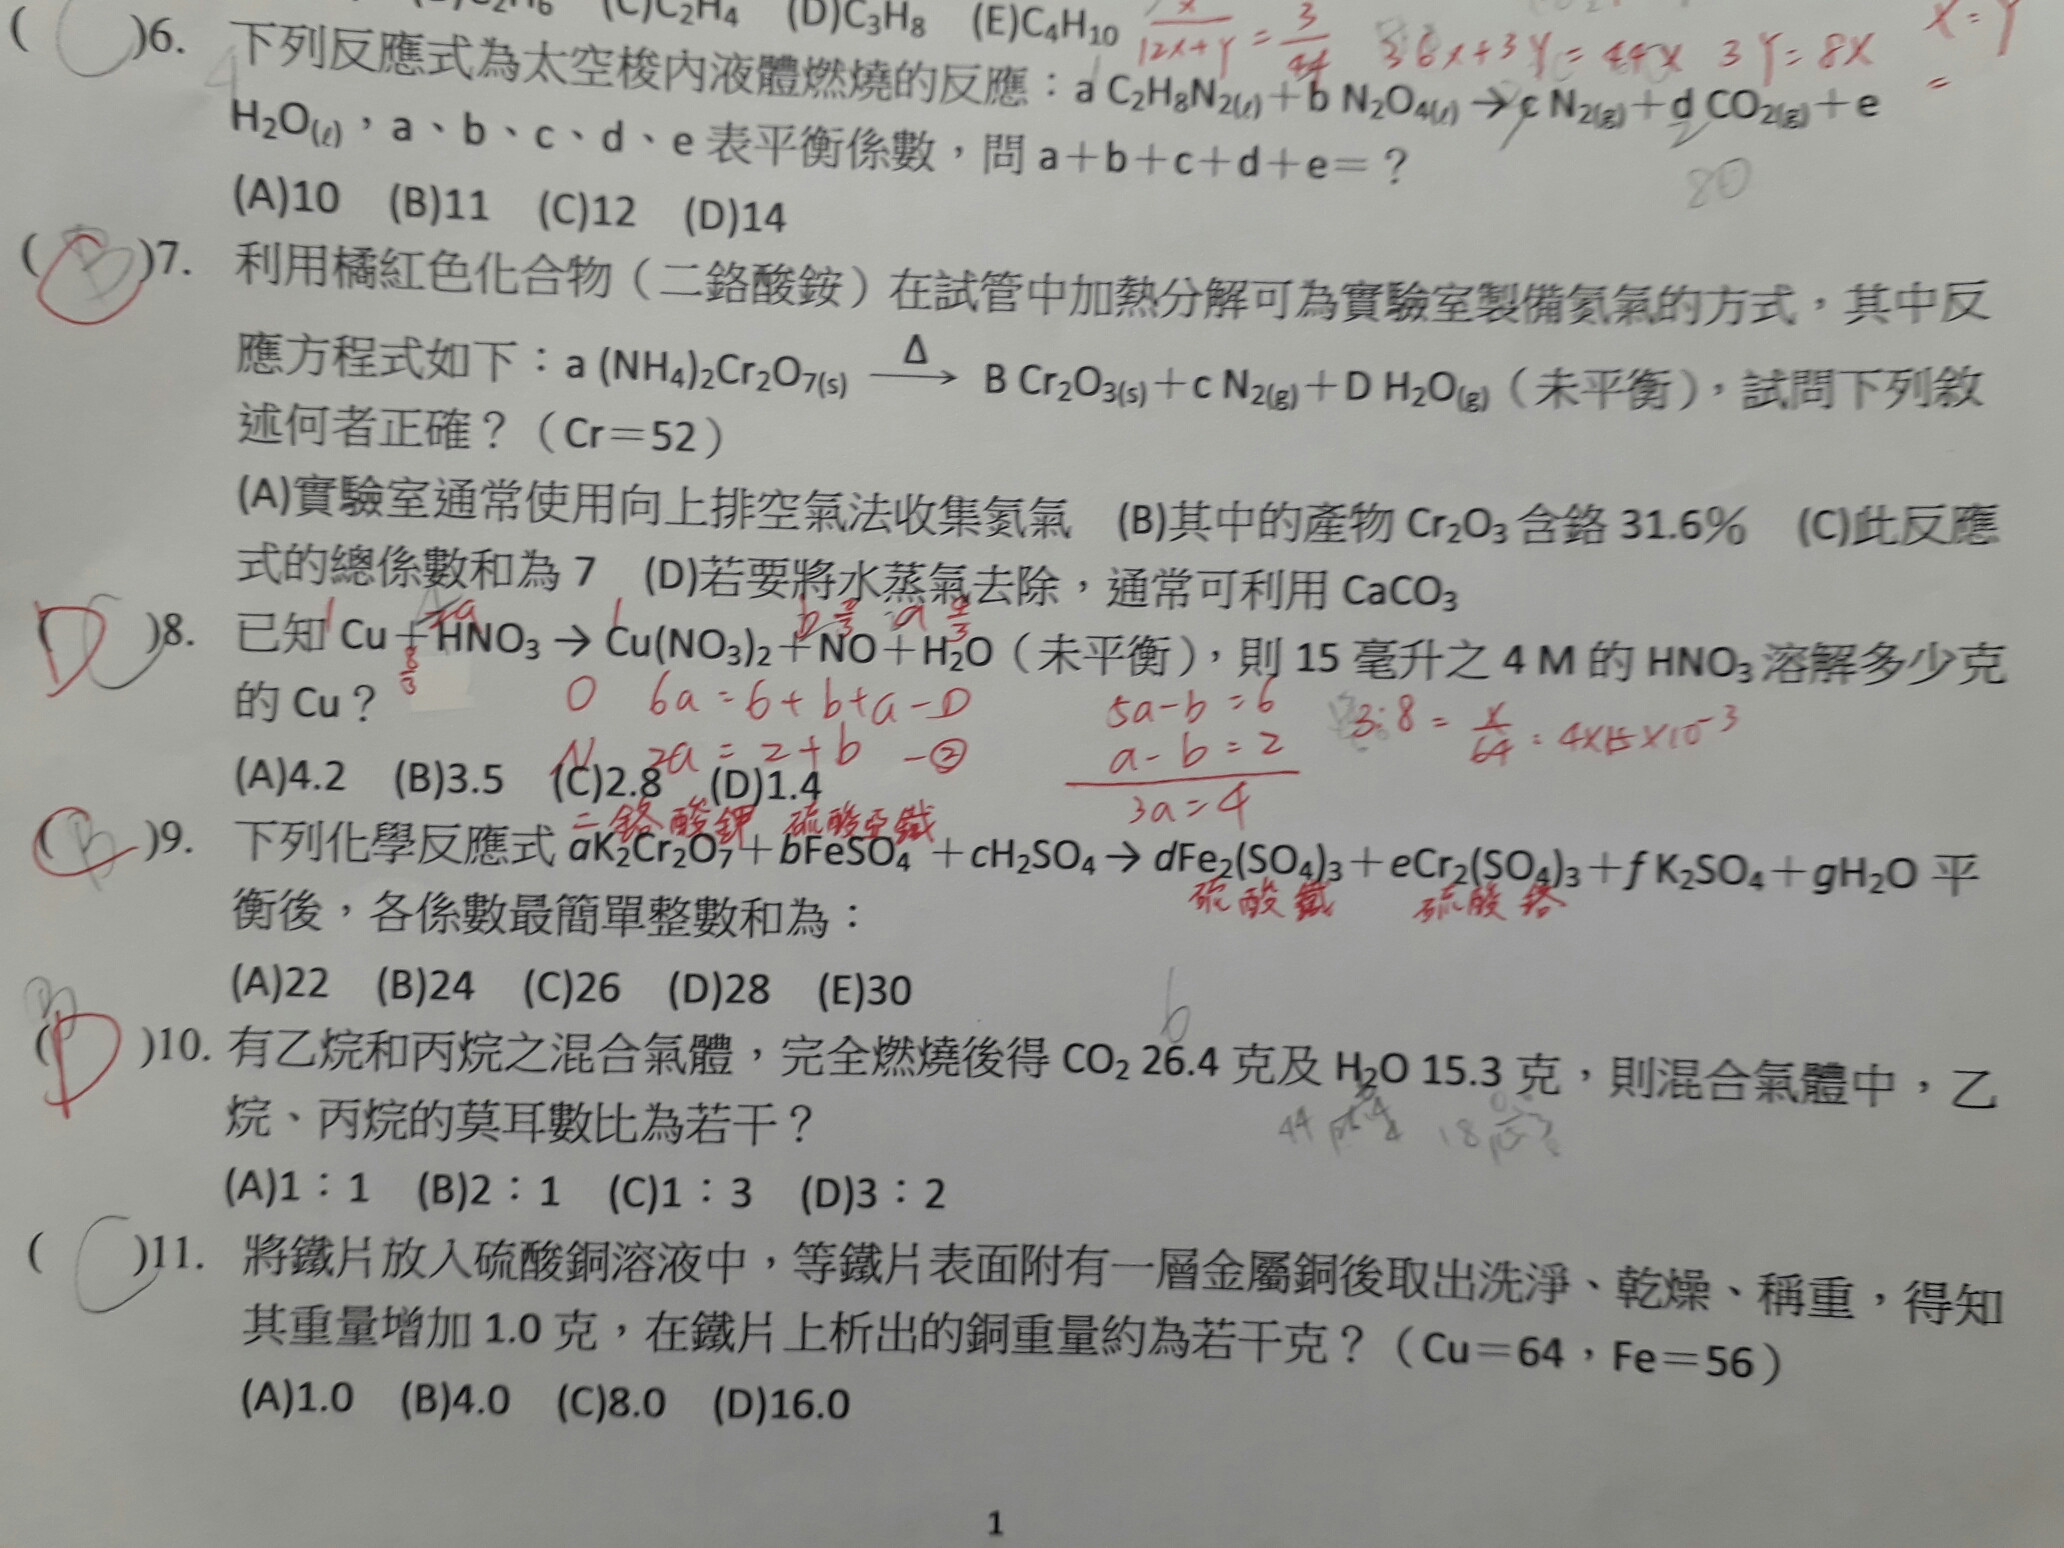 (C)C₂H₄ (D)C₃H₈ (E)C₄H₁₀ x/(12x+y) = 3/44 36x+3y = 44x 3y = 8x x = y
( C )6. 下列反應式為太空梭內液體燃燒的反應：a C₂H₈N₂(ℓ)＋b N₂O₄(ℓ) → c N₂(g)＋d CO₂(g)＋e =
H₂O(ℓ)，a、b、c、d、e 表平衡係數，問 a＋b＋c＋d＋e＝？ 80
(A)10 (B)11 (C)12 (D)14
( B )7. 利用橘紅色化合物（二鉻酸銨）在試管中加熱分解可為實驗室製備氮氣的方式，其中反
應方程式如下：a (NH₄)₂Cr₂O₇(s) Δ→ B Cr₂O₃(s)＋c N₂(g)＋D H₂O(g)（未平衡），試問下列敘
述何者正確？（Cr＝52）
(A)實驗室通常使用向上排空氣法收集氮氣 (B)其中的產物 Cr₂O₃ 含鉻 31.6% (C)此反應
式的總係數和為 7 (D)若要將水蒸氣去除，通常可利用 CaCO₃
1 2a 1 b 2/3 a 4/3
( D )8. 已知 Cu＋HNO₃ → Cu(NO₃)₂＋NO＋H₂O（未平衡），則 15 毫升之 4 M 的 HNO₃ 溶解多少克
的 Cu？ 8/3 O 6a = 6+b+a -① 5a-b = 6 3:8 = x/64 : 4×15×10⁻³
N 2a = 2+b -② a-b = 2
(A)4.2 (B)3.5 (C)2.8 (D)1.4
3a = 4
二鉻酸鉀 硫酸亞鐵
( C )9. 下列化學反應式 aK₂Cr₂O₇＋bFeSO₄＋cH₂SO₄ → dFe₂(SO₄)₃＋eCr₂(SO₄)₃＋f K₂SO₄＋gH₂O 平
硫酸鐵 硫酸鉻
衡後，各係數最簡單整數和為：
(A)22 (B)24 (C)26 (D)28 (E)30
6
( D )10. 有乙烷和丙烷之混合氣體，完全燃燒後得 CO₂ 26.4 克及 H₂O 15.3 克，則混合氣體中，乙
烷、丙烷的莫耳數比為若干？
(A)1：1 (B)2：1 (C)1：3 (D)3：2
( C )11. 將鐵片放入硫酸銅溶液中，等鐵片表面附有一層金屬銅後取出洗淨、乾燥、稱重，得知
其重量增加 1.0 克，在鐵片上析出的銅重量約為若干克？（Cu＝64，Fe＝56）
(A)1.0 (B)4.0 (C)8.0 (D)16.0
1